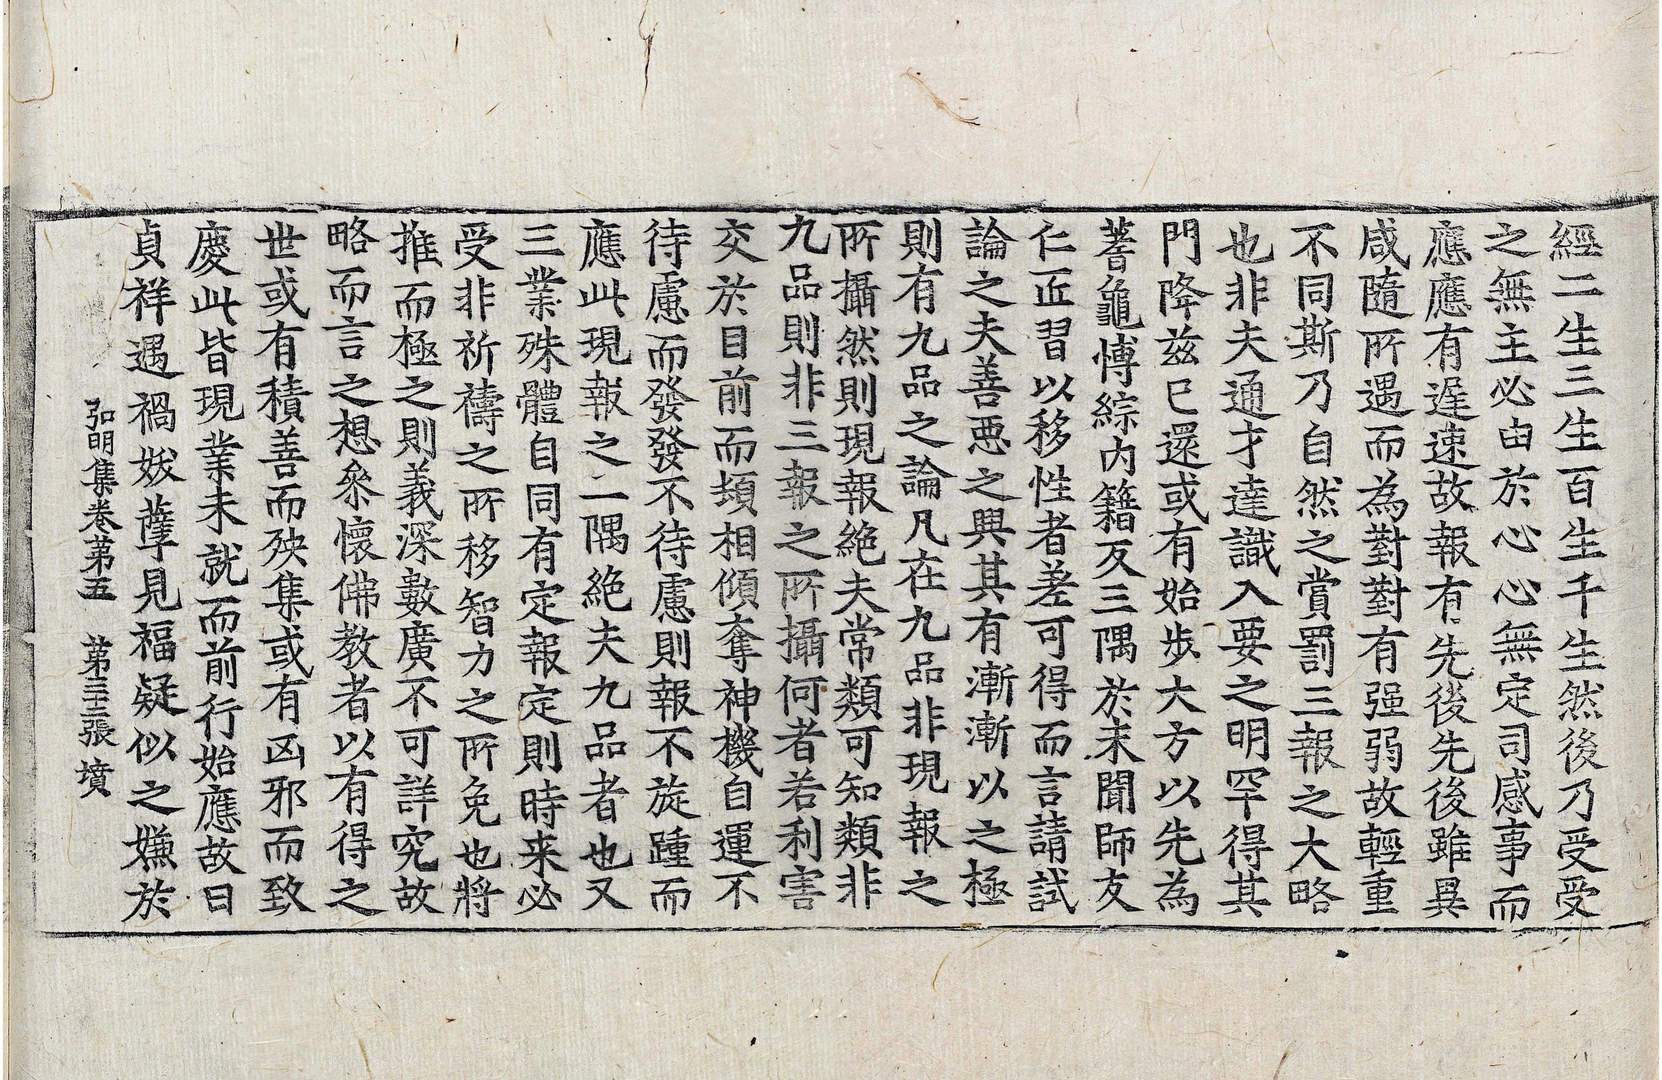 經二生三生百生千生然後乃受受
之無主必由於心心無定司感事而
應應有遲速故報有先後先後雖異
咸隨所遇而為對對有强弱故輕重
不同斯乃自然之賞罰三報之大略
也非夫通才達識入要之明罕得其
門降兹巳還或有始步大方以先為
蓍龜博綜內籍反三隅於未聞師友
仁匠習以移性者差可得而言請試
論之夫善惡之興其有漸漸以之極
則有九品之論凡在九品非現報之
所攝然則現報絶夫常類可知類非
九品則非三報之所攝何者若利害
交於目前而頓相傾奪神機自運不
待慮而發發不待慮則報不旋踵而
應此現報之一隅絶夫九品者也又
三業殊體自同有定報定則時来必
受非祈禱之所移智力之所免也將
推而極之則義深數廣不可詳究故
略而言之想叅懷佛教者以有得之
世或有積善而殃集或有凶邪而致
慶此皆現業未就而前行始應故曰
貞祥遇禍妖孽見福疑似之嫌於
弘明集卷第五　第三十三張　墳